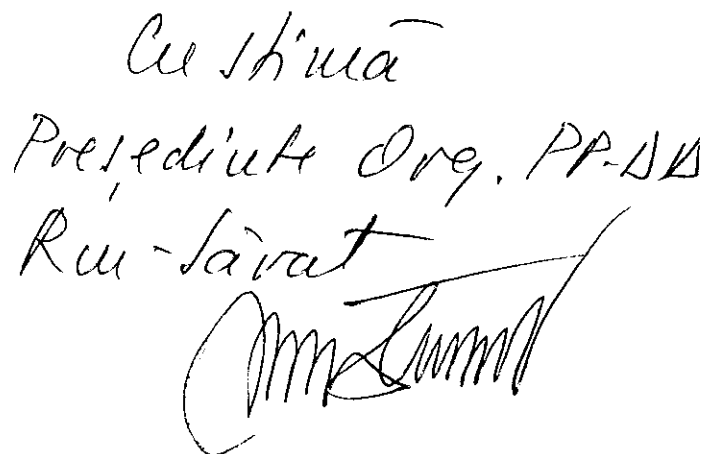 Cu stimă
Președinte Org. PP-DD
Rm-Sărat